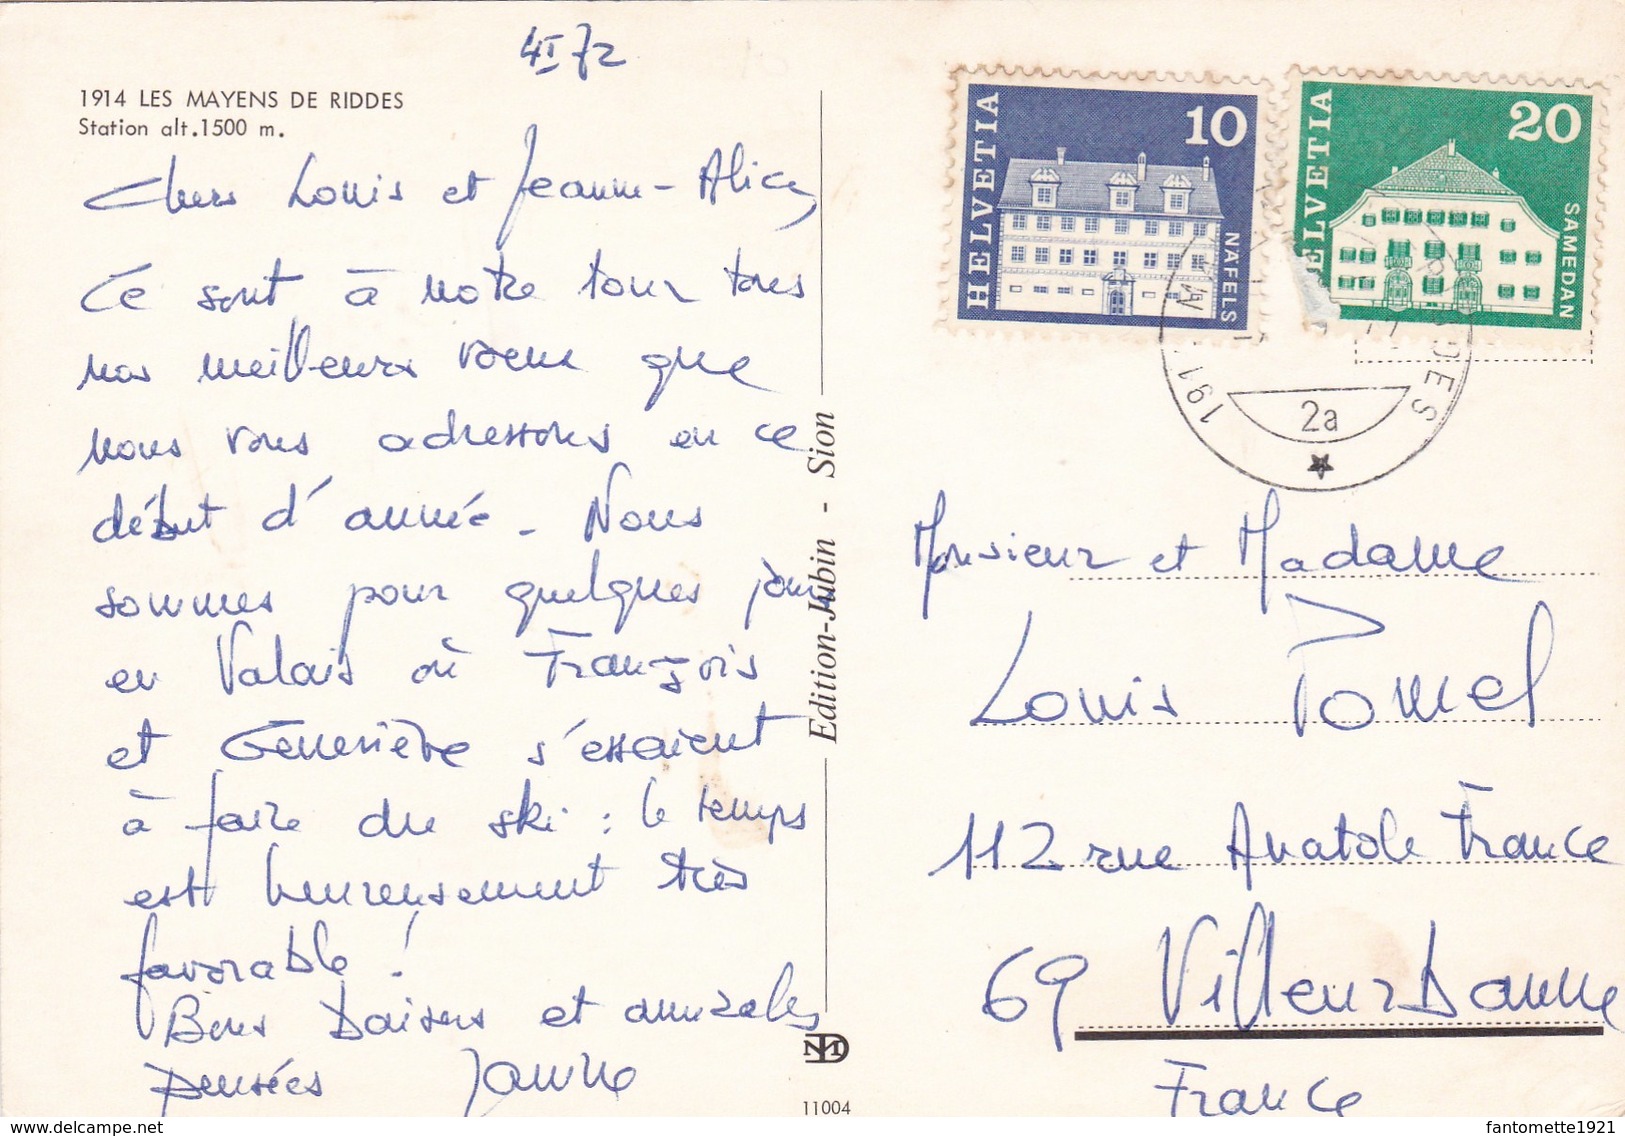 4 I 72
1914 LES MAYENS DE RIDDES
Station alt.1500 m.
Chers Louis et Jeanne-Alice,
Ce sont à notre tour tous
nos meilleurs voeux que
nous vous adressons en ce
début d'année. Nous
sommes pour quelques jours
en Valais où François
et Geneviève s'essaient
à faire du ski : le temps
est heureusement très
favorable !
Bons baisers et amicales
pensées Janine
Edition-Jubin - Sion
11004
HELVETIA
10
NÄFELS
HELVETIA
20
SAMEDAN
2a
Monsieur et Madame
Louis Pomel
112 rue Anatole France
69 Villeurbanne
France
delcampe.net
fantomette1921